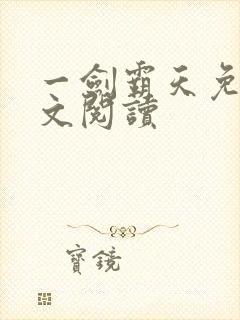 一劍霸天免
文閱讀
寶鏡